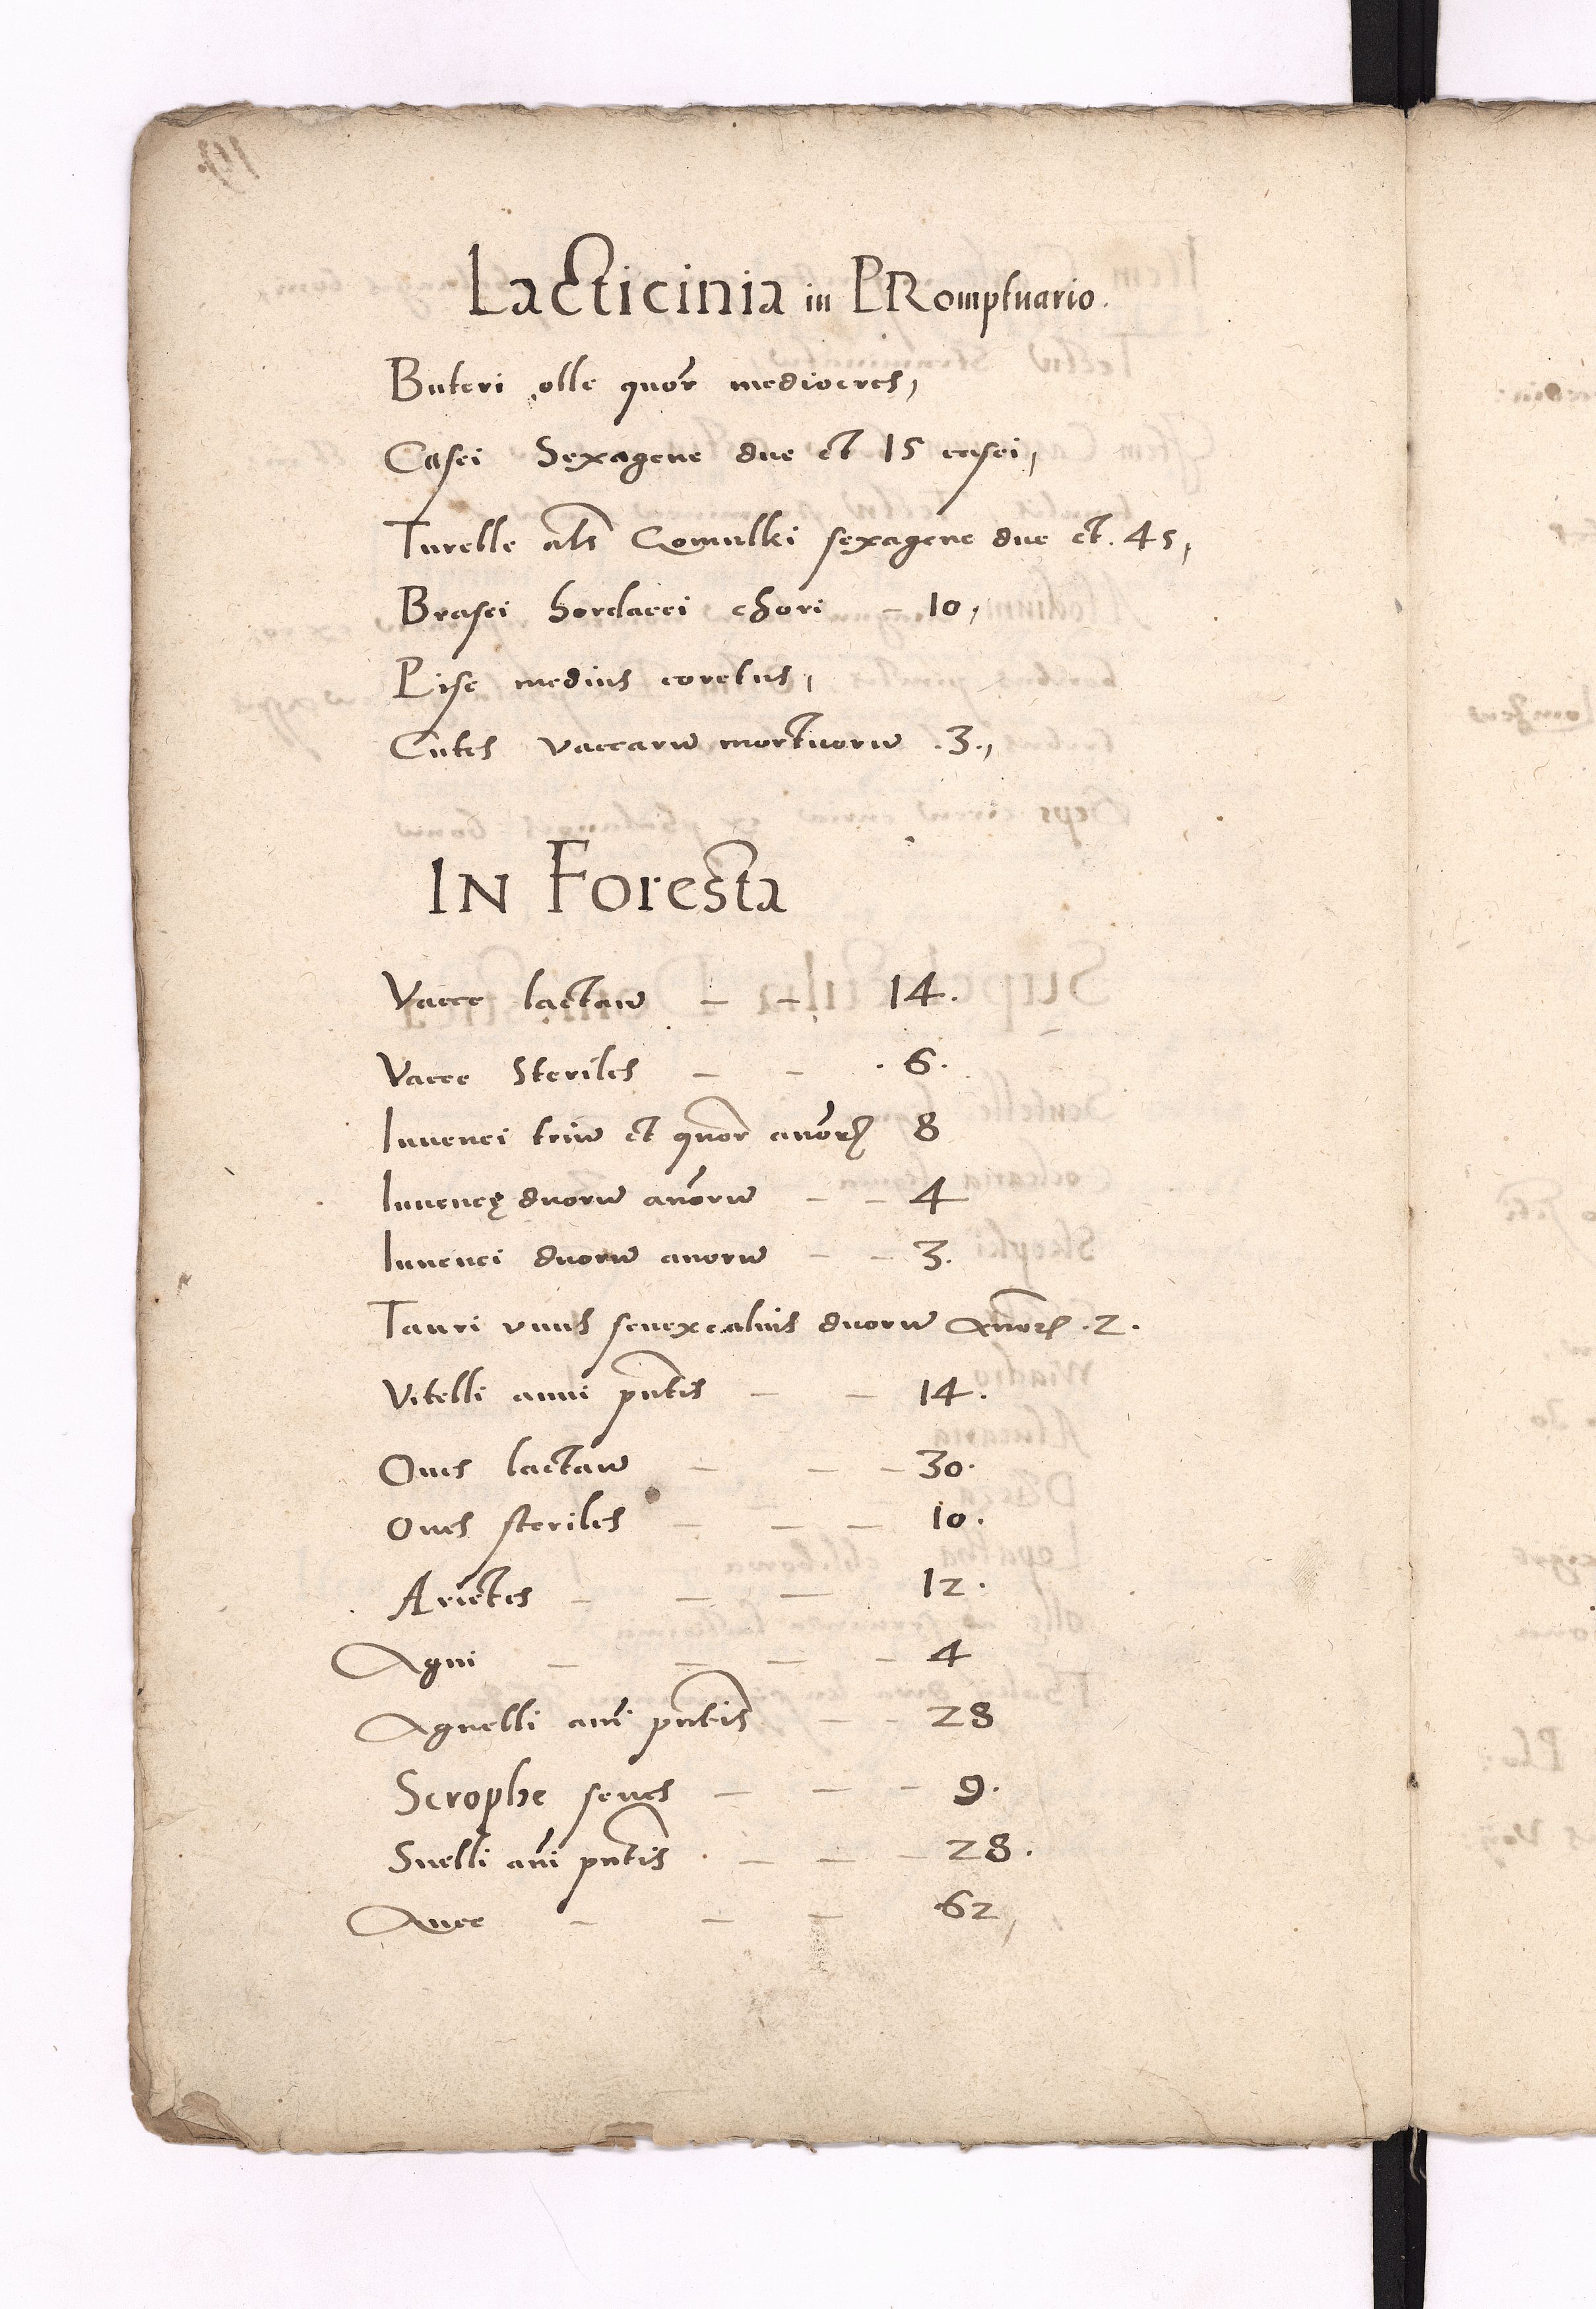 Lacticinia in PRomptuario.
Buteri olle quor mediocres,
Casei Sexagene due et 15 casei,
Turelle als Gomulki sexagene due et. 45,
Brasei hordacei chori – 10,
Pise medius coretus,
Cutes vaccarũ mortuorũ .3.,
IN Foresta
Vacce lactaũ – – 14.
Vacce Steriles – – .6.
Iuuenci triũ et quor annorꝝ 8
Iuuencę duorũ anorũ – – 4
Iuuenci duorũ anorũ – – 3.
Tauri vnus senex alius duorũ Annorꝝ .2.
Vitelli anni pntis – – 14.
Oues lactaũ – – – 30.
Oues steriles – – – 10.
Arietes – – – 12.
Agni – – – – 4
Agnelli ani pntis – – 28
Scrophe senes – – – 9.
Suelli ani pntis . – – – 28.
Auce – – – 62,